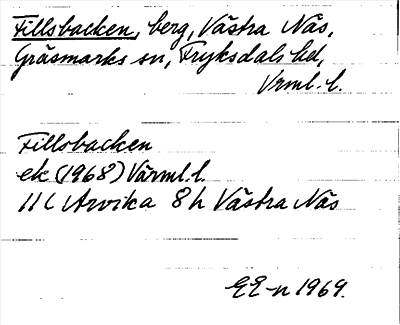 Fillsbacken, berg, Västra Näs,
Gräsmarks sn, Fryksdals hd,
Vrml. l.
Fillsbacken
ek (1968) Värml. l.
11C Arvika 8h Västra Näs
EE-n 1969.